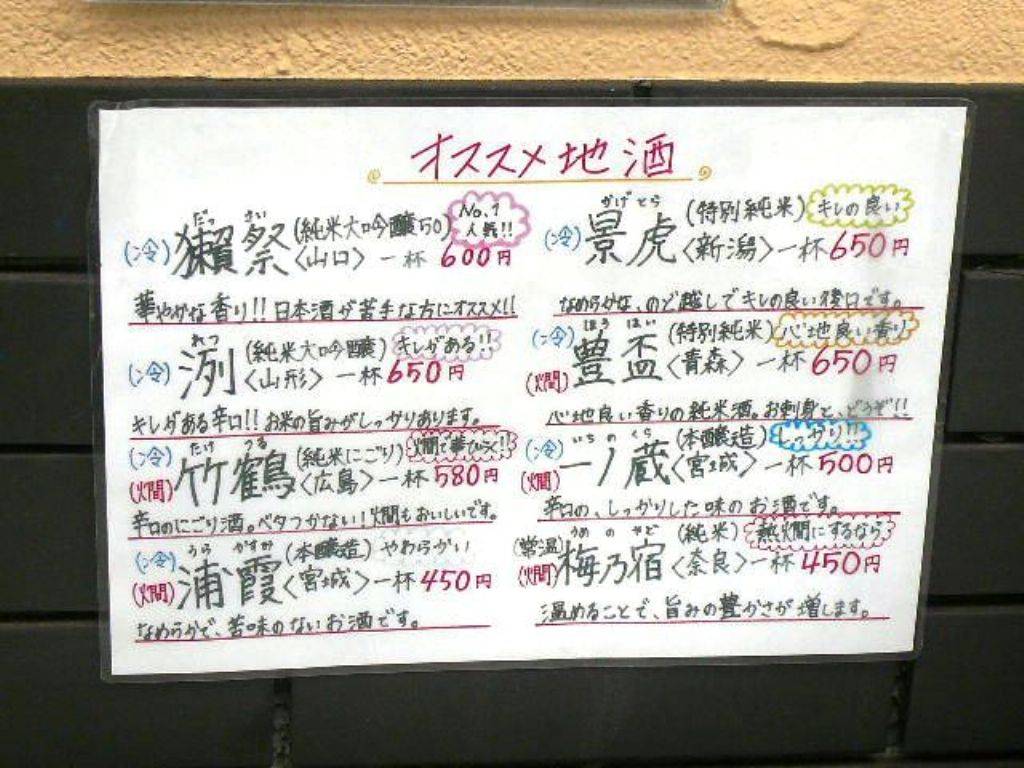 オススメ地酒
だっ さい
(冷) 獺祭 (純米大吟醸50) No.1 人気!!
〈山口〉 一杯 600円
華やかな香り!! 日本酒が苦手な方にオススメ!!
れつ
(冷) 洌 (純米大吟醸) キレがある!!
〈山形〉 一杯 650円
キレがある辛口!! お米の旨みがしっかりあります。
たけ つる
(冷) (燗) 竹鶴 (純米にごり) 燗で華ひらく!!
〈広島〉 一杯 580円
辛口のにごり酒。ベタつかない！燗もおいしいです。
うら かすみ
(冷) (燗) 浦霞 (本醸造) やわらかい
〈宮城〉 一杯 450円
なめらかで、苦味のないお酒です。
かげ とら
(冷) 景虎 (特別純米) キレの良い
〈新潟〉 一杯 650円
なめらかな、のど越しでキレの良い後口です。
ほう はい
(冷) (燗) 豊盃 (特別純米) 心地良い香り
〈青森〉 一杯 650円
心地良い香りの純米酒。お刺身と、どうぞ!!
いち の くら
(冷) (燗) 一ノ蔵 (本醸造) しっかり!!
〈宮城〉 一杯 500円
辛口の、しっかりした味のお酒です。
うめ の やど
(常温) (燗) 梅乃宿 (純米) 熱燗にするなら
〈奈良〉 一杯 450円
温めることで、旨みの豊かさが増します。